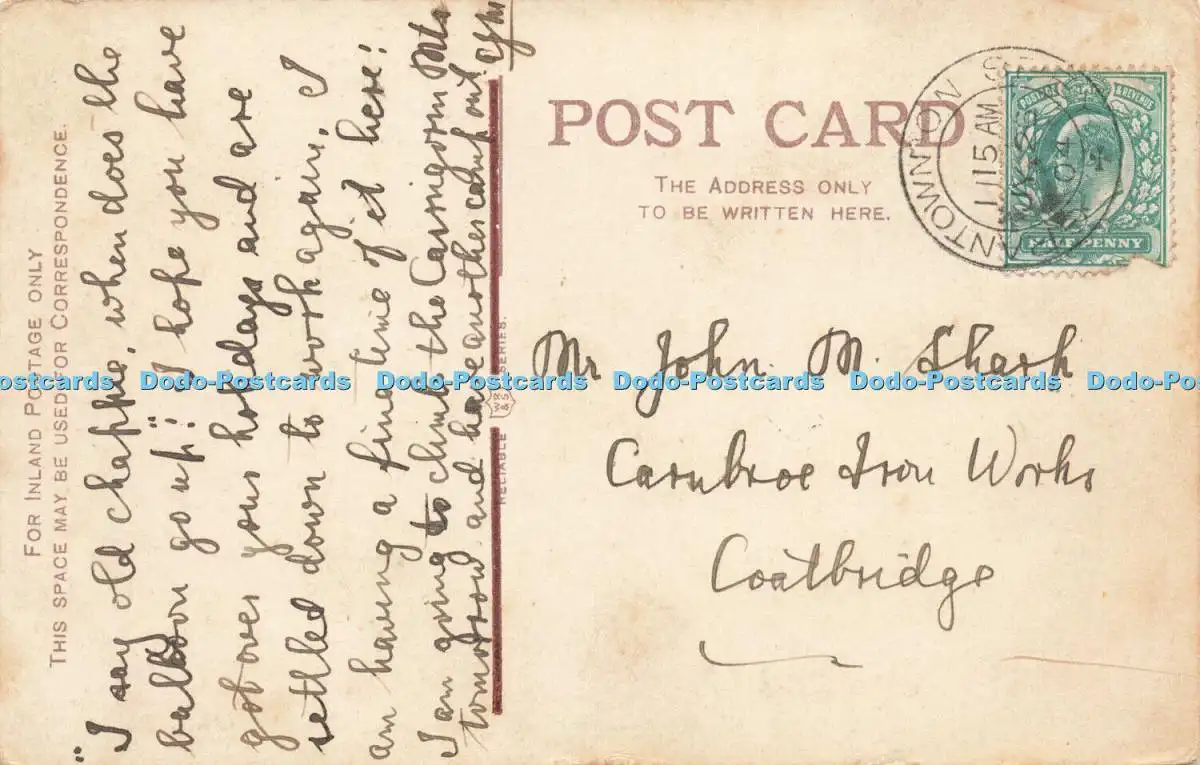 FOR INLAND POSTAGE ONLY
THIS SPACE MAY BE USED FOR CORRESPONDENCE.
"I say old chappie, when does the
balloon go up"! I hope you have
got over your holidays and are
settled down to work again, I
am having a fine time of it here!
I am going to climb the Cairngorm Mts
tomorrow and have another camp out.
POST CARD
THE ADDRESS ONLY
TO BE WRITTEN HERE.
GRANTOWN
11 15 AM
04
POSTAGE & REVENUE
HALFPENNY
Mr John. M. Shark
Carnbroe Iron Works
Coatbridge
RELIABLE WR & S SERIES.
Dodo-Postcards Dodo-Postcards Dodo-Postcards Dodo-Postcards Dodo-Postcards Dodo-Postcards